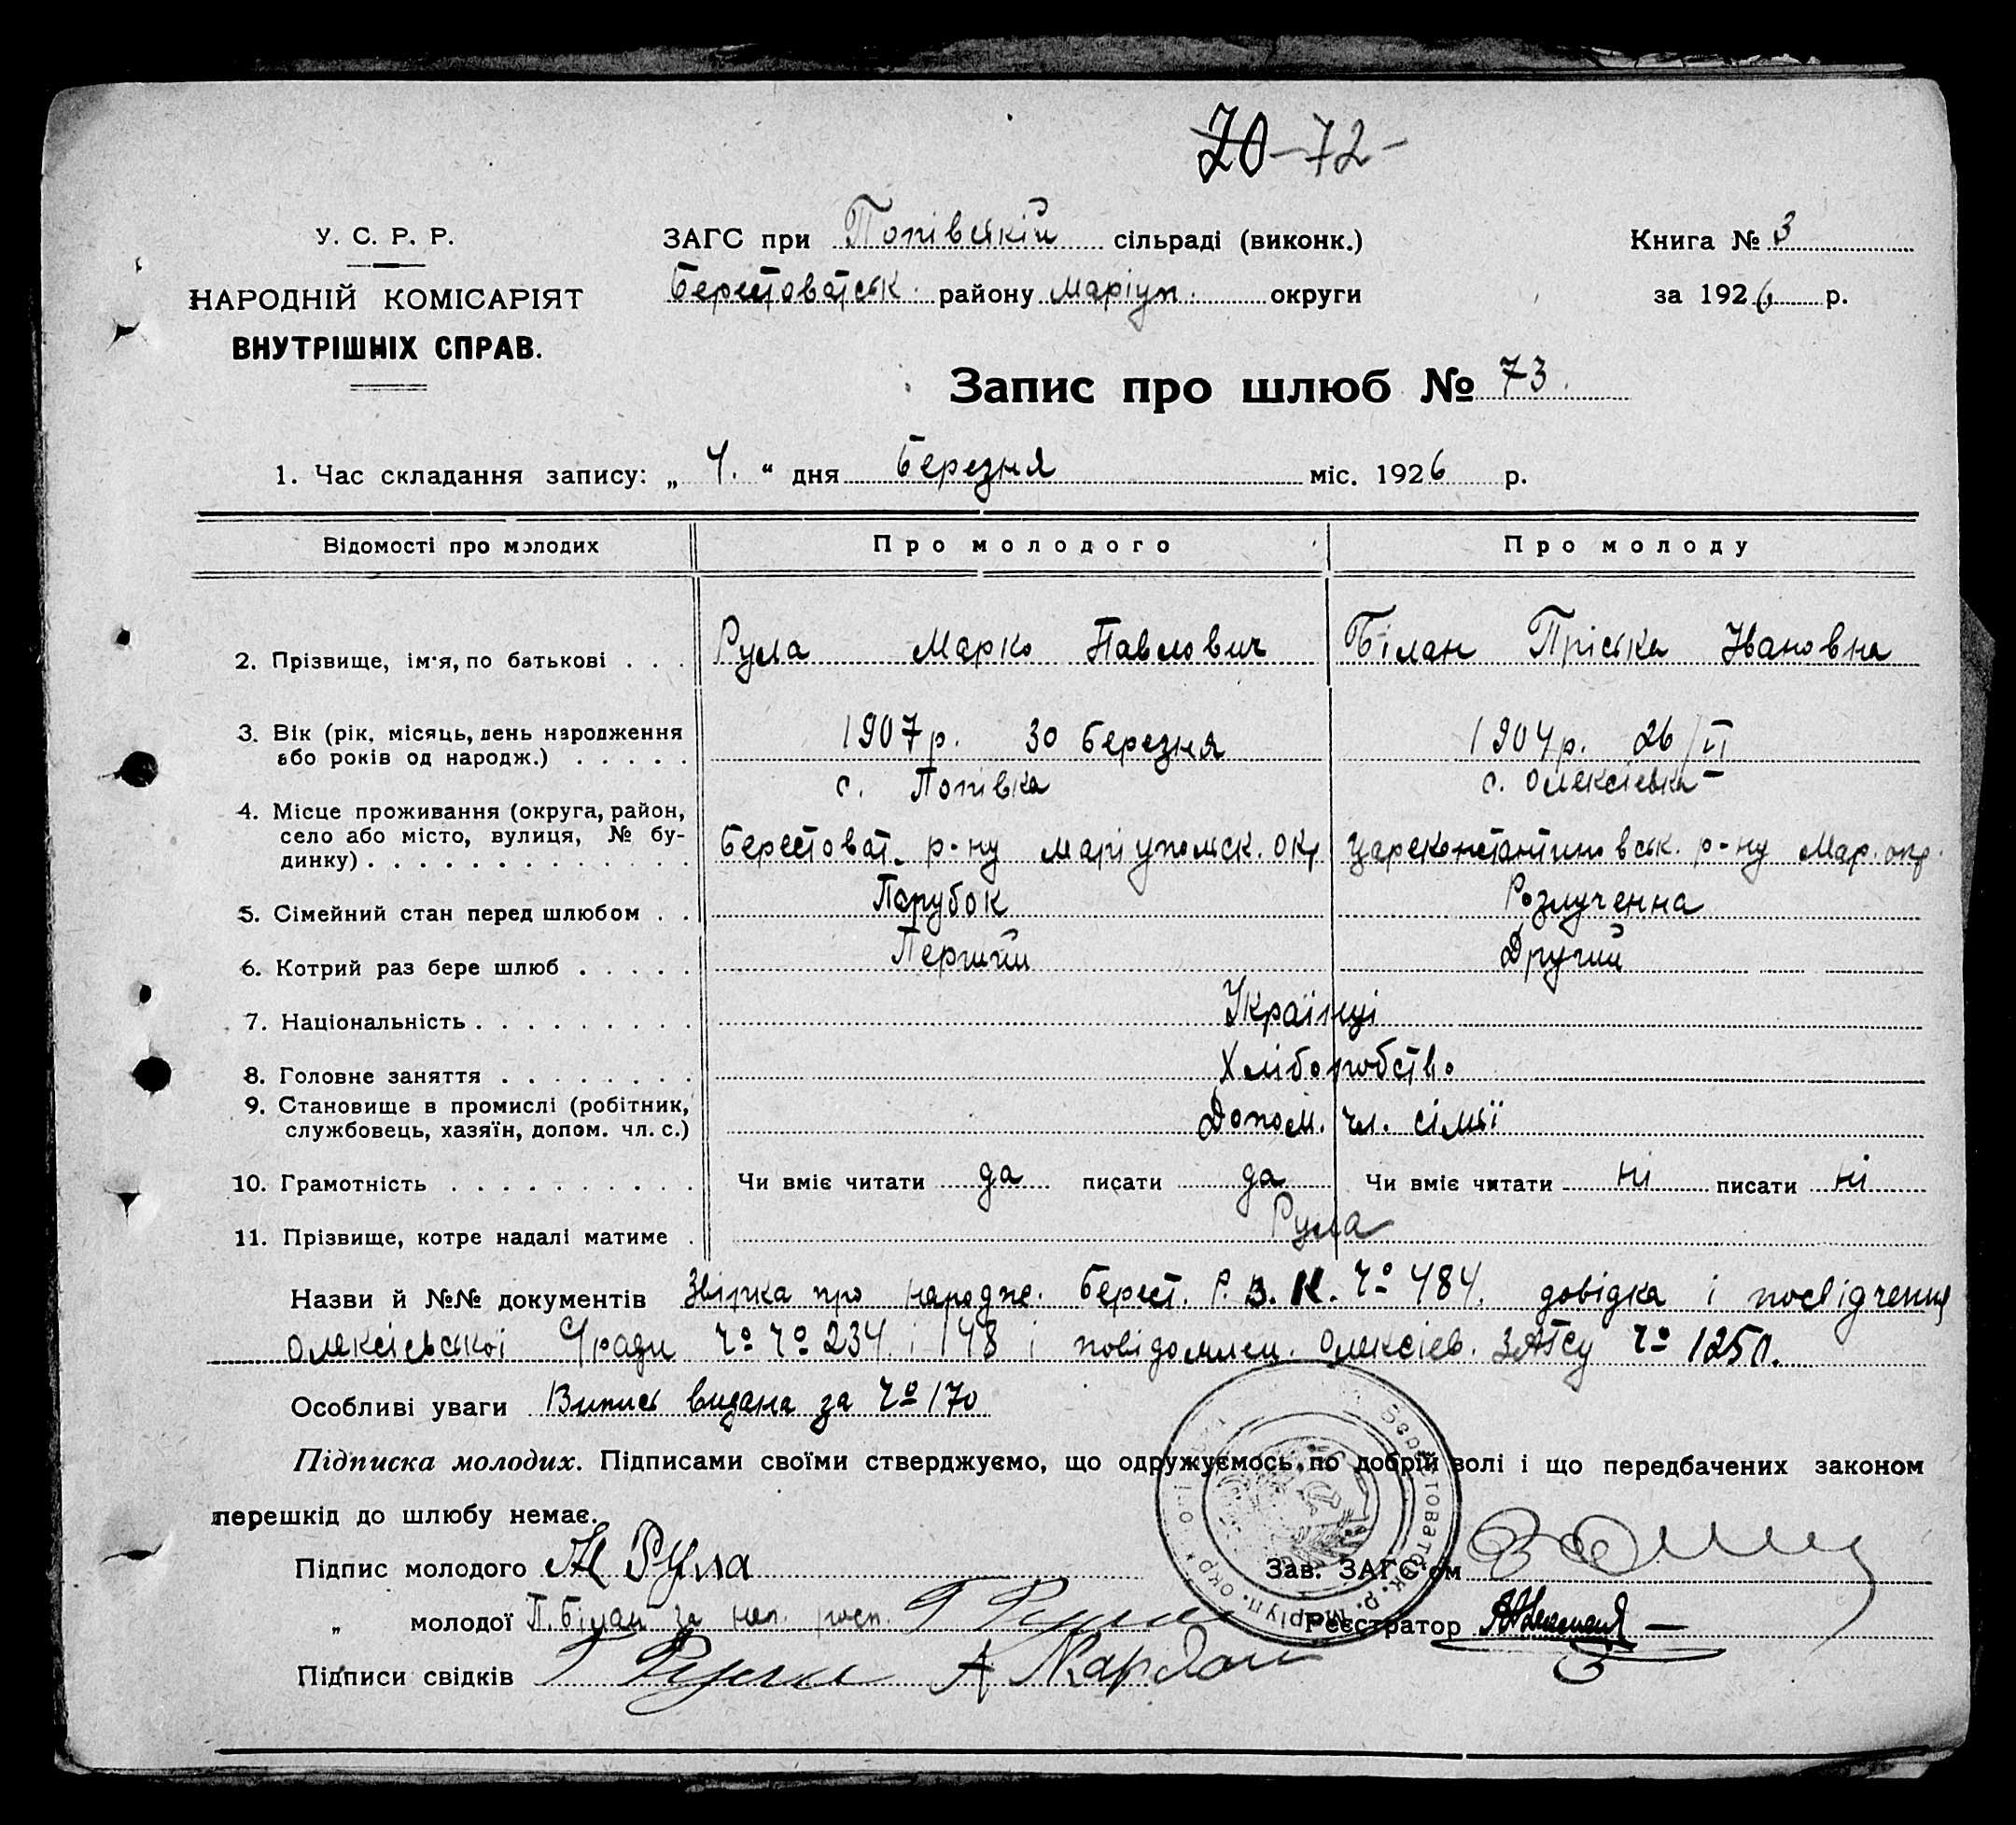 70 - 72 -
У. С. Р. Р.
НАРОДНІЙ КОМІСАРІЯТ
ВНУТРІШНІХ СПРАВ.
ЗАГС при Попівській сільраді (виконк.)
Берестоватськ. району Маріуп. округи
Книга № 3
за 1926 р.
Запис про шлюб № 73.
1. Час складання запису: „ 4. “ дня Березня міс. 1926 р.
Відомості про молодих Про молодого Про молоду
2. Прізвище, ім'я, по батькові . . . Рула Марко Павлович Білан Пріська Івановна
3. Вік (рік, місяць, день народження
або років од народж.) . . . . . 1907 р. 30 Березня 1904 р. 26/VI
с. Попівка с. Олексієвка
4. Місце проживання (округа, район,
село або місто, вулиця, № бу-
динку) . . . . . . . . . . . . . Берестоват. р-ну Маріупольск. окр Цареконстантиновськ. р-ну Мар. окр.
5. Сімейний стан перед шлюбом . . Парубок Розлученна
6. Котрий раз бере шлюб . . . . . Перший Другий
7. Національність . . . . . . . . . Українці
8. Головне заняття . . . . . . . . Хліборобство
9. Становище в промислі (робітник,
службовець, хазяїн, допом. чл. с.) Допом. чл. сімьї
10. Грамотність . . . . . . . . . . Чи вміє читати да писати да Чи вміє читати ні писати ні
11. Прізвище, котре надалі матиме . Рула
Назви й №№ документів Звірка про народже. Берест. Р.В.К. № 484. довідка і посвідчення
Олексієвської с/ради № № 234 і 148 і повідомлен. Олексієв. ЗАГСу № 1250.
Особливі уваги Випись видана за № 170
Підписка молодих. Підписами своїми стверджуємо, що одружуємось по добрій волі і що передбачених законом
перешкід до шлюбу немає.
Підпис молодого М Рула
Зав. ЗАГС'ом
„ молодої П. Білан за неп. росп. Г Рула
Реєстратор
Підписи свідків Г Рула А Карбан